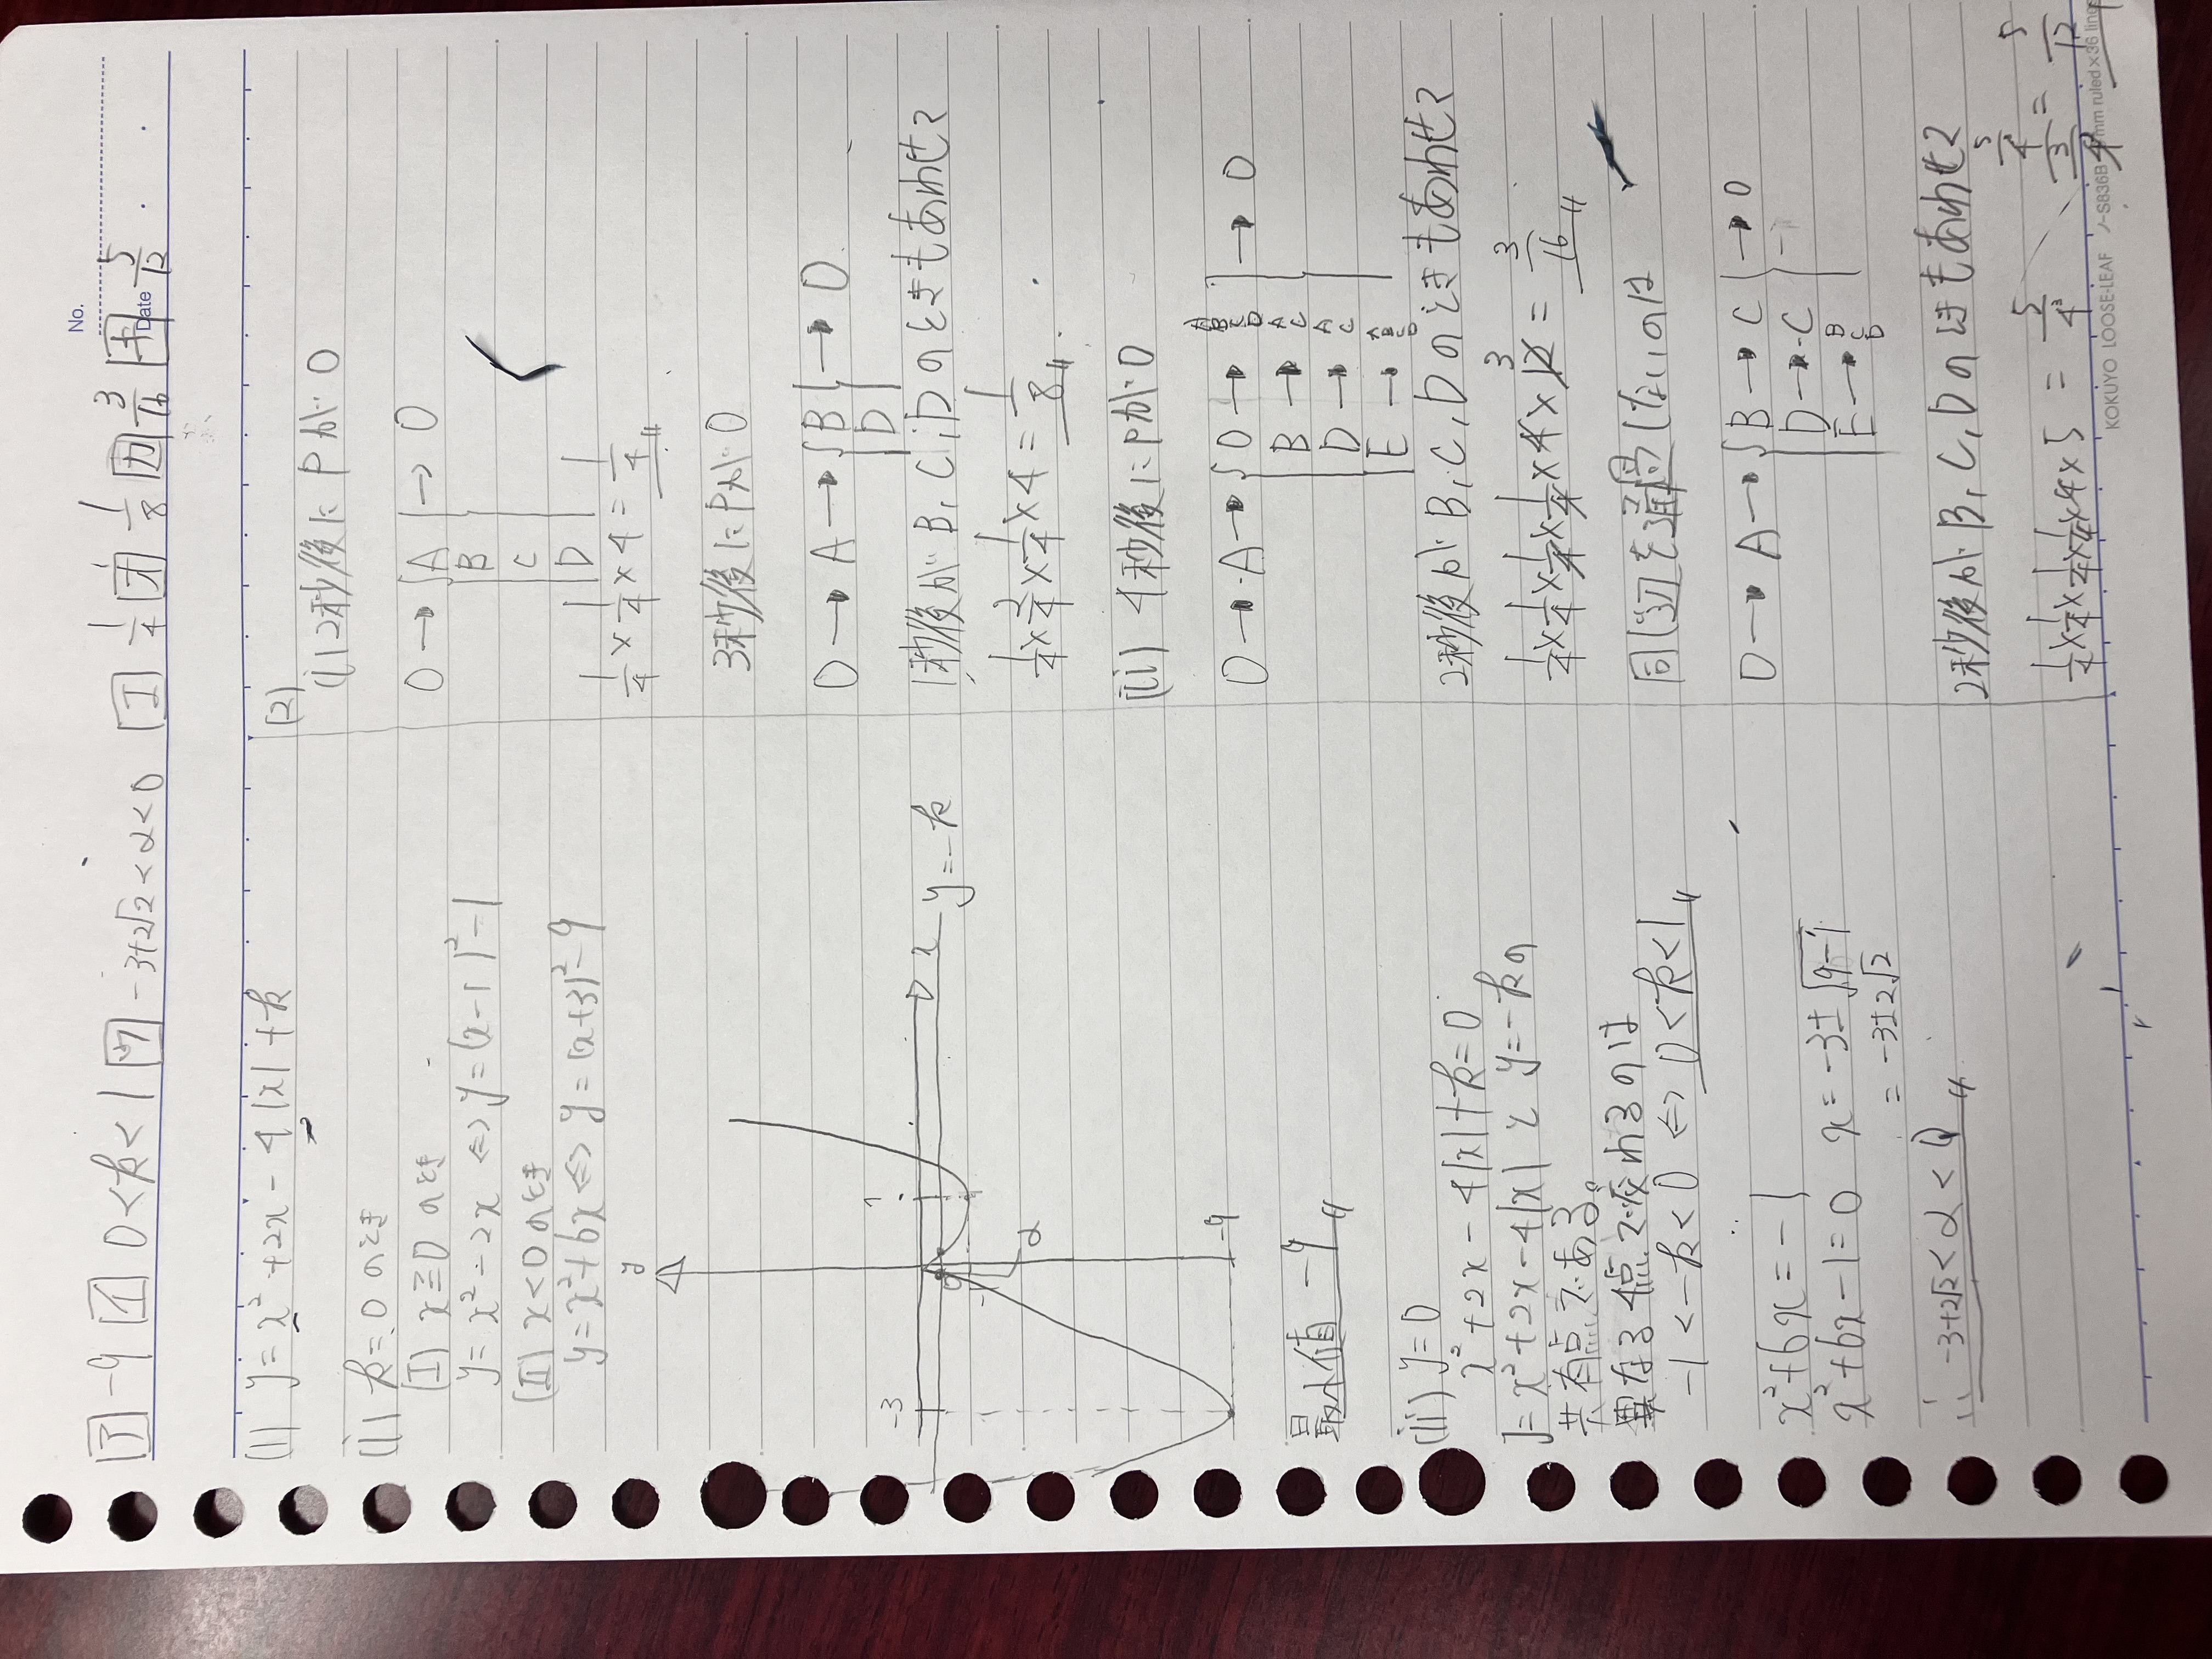 No.
Date
ア -9 イ 0<k<1 ウ -3+2√2<α<0 エ 1/4 オ 1/8 カ 3/16 キ 5/12
(1) y=x²+2x-4|x|+k
(i) k=0のとき
(I) x≧0のとき
y=x²-2x ⇔ y=(x-1)²-1
(II) x<0のとき
y=x²+6x ⇔ y=(x+3)²-9
y
-3
1
x
y=-k
α
-1
-9
最小値 -9
(ii) y=0
x²+2x-4|x|+k=0
y=x²+2x-4|x|とy=-kの
共有点である。
異なる4点で交わるのは
-1<-k<0 ⇔ 0<k<1
x²+6x=-1
x²+6x-1=0 x=-3±√9-1
=-3±2√2
∴ -3+2√2<α<0
(2)
(i) 2秒後にPがO
O→A→O
B
C
D
1/4×1/4×4=1/4
3秒後にPがO
O→A→B→O
D
1秒後がB,C,Dのときもあわせて
1/4×2/4×1/4×4=1/8
(ii) 4秒後にPがO
O→A→O→A B C D→O
B→A C
D→A C
E→A B C D
2秒後がB,C,Dのときもあわせて
1/4×1/4×1/4×1/4×4×12=3/16
同じ辺を通らないのは
O→A→B→C→O
D→C
E→B C D
2秒後がB,C,Dのときもあわせて
1/4×1/4×1/4×1/4×4×5=5/4³
5/4³ / 3/4² = 5/12
KOKUYO LOOSE-LEAF ノ-S836B 7mm ruled×36 lines